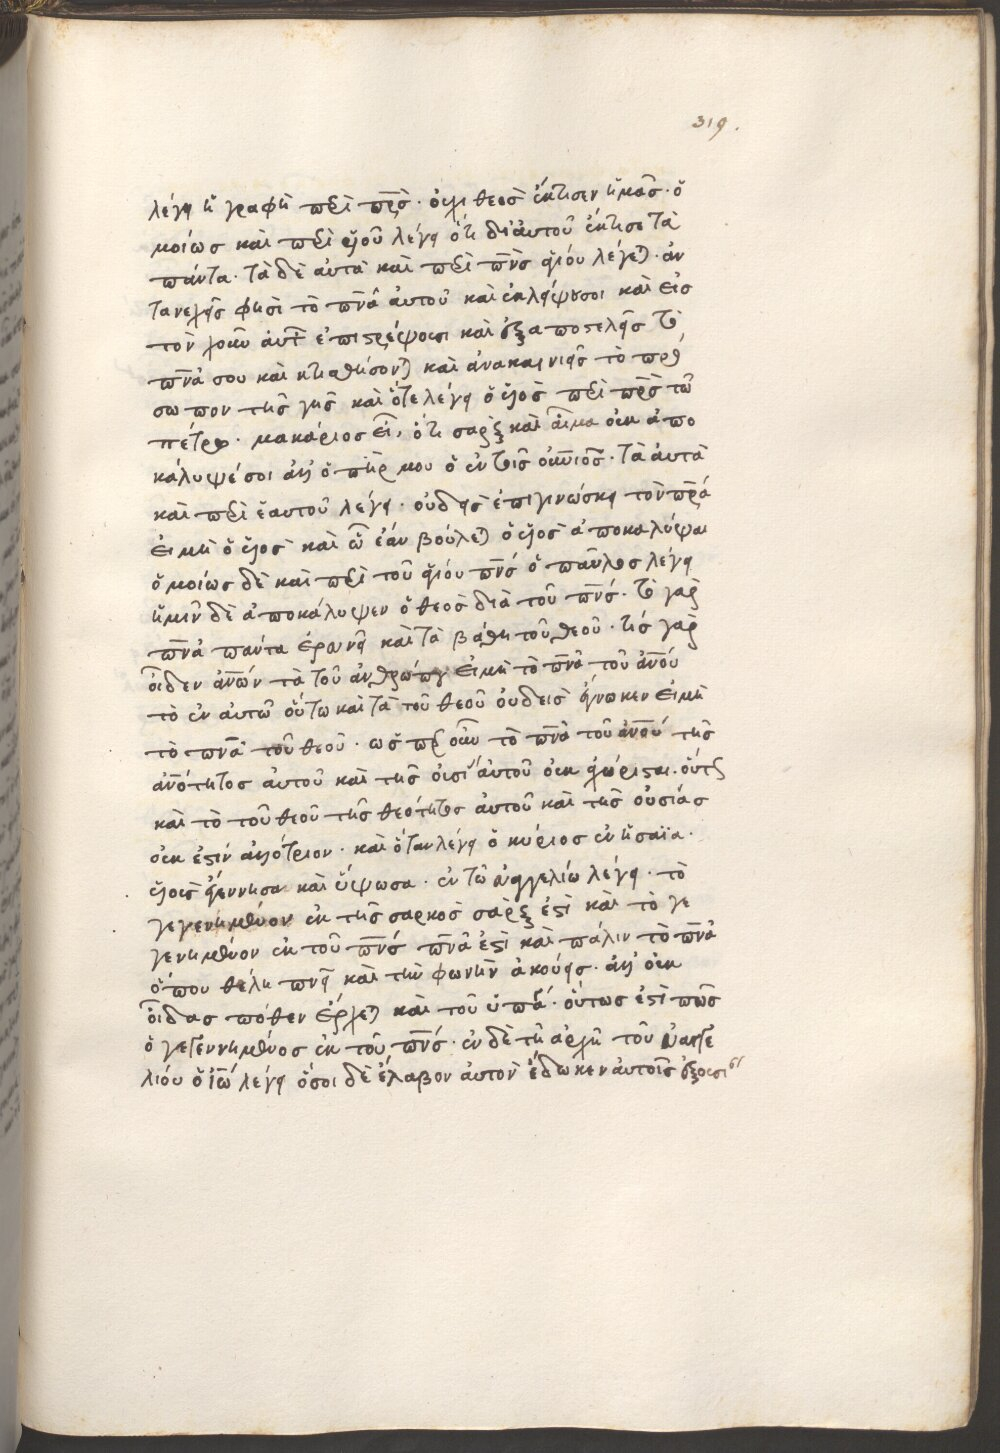 319.
λέγει ἡ γραφὴ περὶ π̅ρ̅ς̅· οὐχὶ θεὸς ἔκτισεν ἡμᾶς· ὁ
μοίως καὶ περὶ υἱοῦ λέγει ὅτι δι αὐτοῦ ἔκτισε τὰ
πάντα· τὰ δὲ αὐτὰ καὶ περὶ π̅ν̅ς̅ ἁγίου λέγει· ἀν
τανελεῖς φησὶ τὸ π̅ν̅α̅ αὐτοῦ καὶ ἐκλείψουσι καὶ εἰς
τὸν χοῦν αὐτ ἐπιστρέψουσι καὶ ἐξαποστελεῖς τό
π̅ν̅α̅ σου καὶ κτισθήσον καὶ ἀνακαινιεῖς τὸ πρό
σωπον τῆς γῆς καὶ ὅτε λέγει ὁ υἱὸς περὶ π̅ρ̅ς̅ τῶ
πέτρω· μακάριος εἶ, ὅτι σαρξ καὶ αἷμα οὐκ ἀπο
κάλυψέ σοι ἀλλ ὁ π̅η̅ρ̅ μου ὁ ἐν τοῖς ο̅υ̅ν̅ιοῖς· τὰ αὐτὰ
καὶ περὶ ἑαυτοῦ λέγει· οὐδεὶς ἐπιγινώσκει τὸν π̅ρ̅α̅
εἰ μὴ ὁ υἱὸς καὶ ὧ ἐάν βούλε ὁ υἱὸς ἀποκαλύψαι
ὁμοίως δὲ καὶ περὶ τοῦ ἁγίου π̅ν̅ς̅ ὁ παῦλος λέγει
ἡμῖν δὲ ἀποκάλυψεν ὁ θεὸς διὰ τοῦ π̅ν̅ς̅· τὸ γὰρ
π̅ν̅α̅ πάντα ἐρευνᾷ καὶ τὰ βάθη τοῦ θεοῦ· τίς γὰρ
οἶδεν α̅ν̅ων τὰ τοῦ ἀνθρώπου εἰ μὴ τὸ π̅ν̅α̅ τοῦ α̅ν̅ου
τὸ ἐν αὐτῶ οὕτω καὶ τὰ τοῦ θεοῦ οὐδεὶς ἔγνωκεν εἰ μὴ
τὸ π̅ν̅α̅ τοῦ θεοῦ· ὥσπερ οὖν τὸ π̅ν̅α̅ τοῦ α̅ν̅ου τῆς
α̅ν̅ότητος αὐτοῦ καὶ τῆς οὐσί αὐτοῦ οὐκ· οὕτως
καὶ τὸ τοῦ θεοῦ τῆς θεότητος αὐτοῦ καὶ τῆς οὐσίας
οὐκ ἔστιν ἀλλότριον· καὶ ὅταν λέγει ὁ κύριος ἐν ἡσαϊα·
υἱοὺς ἐγέννησα καὶ ὕψωσα· ἐν τῶ εὐαγγελίω λέγει· τὸ
γεγενημένον ἐκ τῆς σαρκὸς σάρξ ἐστὶ καὶ τὸ γε
γενημένον ἐκ τοῦ π̅ν̅ς̅ π̅ν̅α̅ ἐστὶ καὶ πάλιν τὸ π̅ν̅α̅
ὅπου θέλη πνεῖ καὶ τὴν φωνὴν ἀκούεις· ἀλλ οὐκ
οἶδας πόθεν ἔρχε καὶ τοῦ ὑπά· οὕτως ἐστὶ πῶς
ὁ γεγεννημένος ἐκ τοῦ π̅ν̅ς̅· ἐν δὲ τῆ ἀρχῆ τοῦ εὐαγγε
λίου ὁ ἰ̅ω̅ λέγει ὅσοι δὲ ἔλαβον αὐτὸν ἔδωκεν αὐτοῖς ἐξουσί